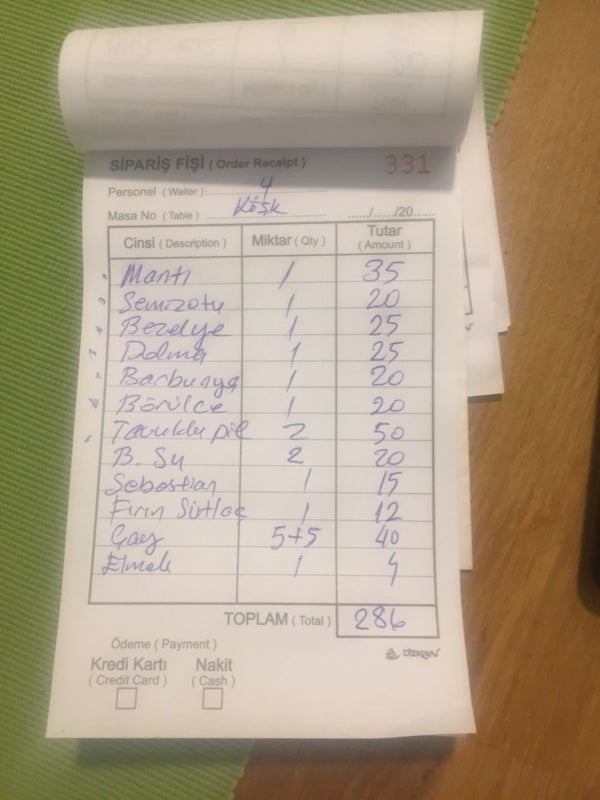 SİPARİŞ FİŞİ ( Order Receipt ) 331
Personel ( Waiter ) : 4
Masa No ( Table ) : Köşk ....../....../20......
Cinsi ( Description ) Miktar ( Qty ) Tutar ( Amount )
Mantı 1 35
Semizotu 1 20
Bezelye 1 25
Dolma 1 25
Barbunya 1 20
Börülce 1 20
Tavuklu pil 2 50
B. Su 2 20
Sebastian 1 15
Fırın Sütlaç 1 12
Çay 5+5 40
Ekmek 1 4
TOPLAM ( Total ) 286
Ödeme ( Payment )
Kredi Kartı Nakit
( Credit Card ) ( Cash )
ÖZKAN